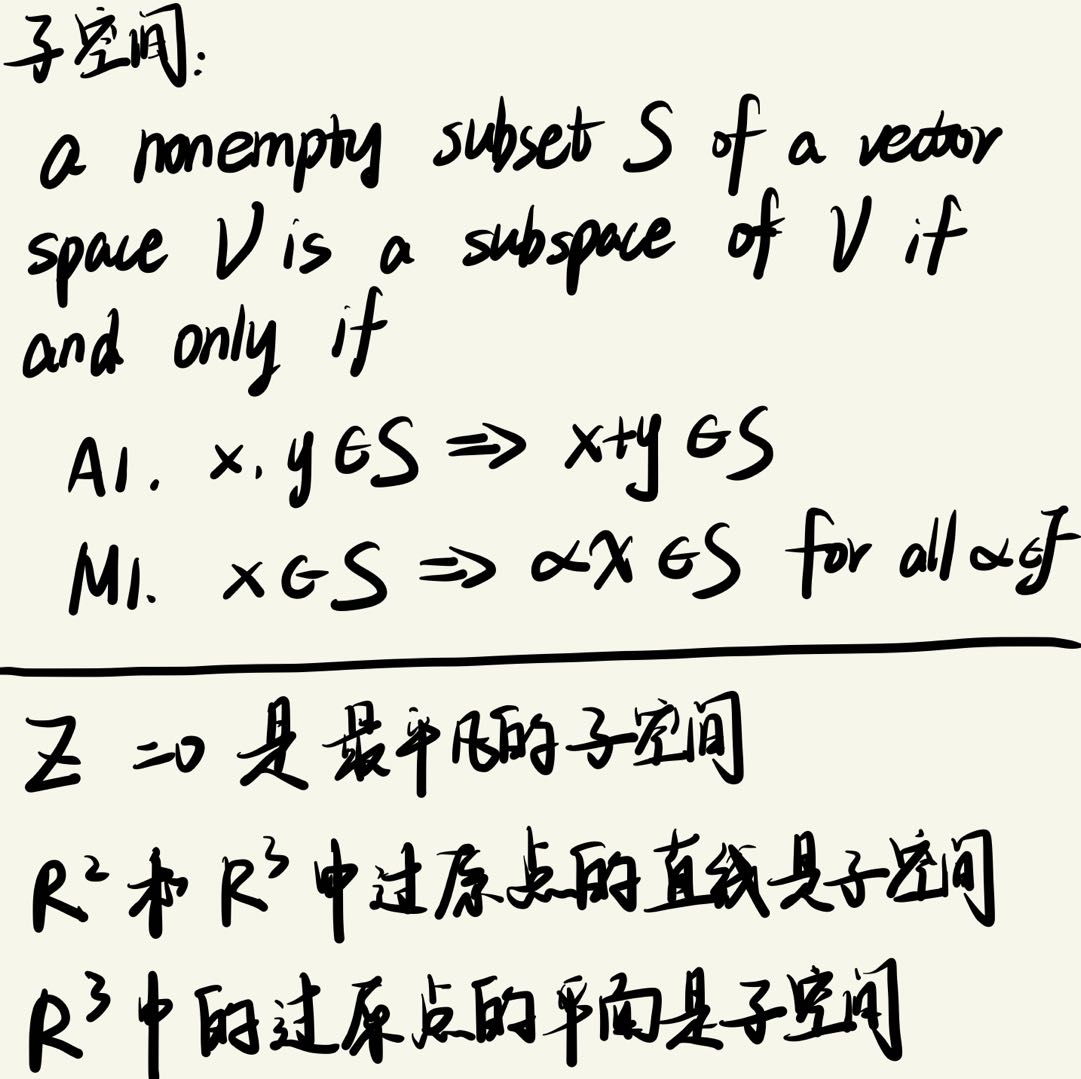 子空间:
a nonempty subset S of a vector
space V is a subspace of V if
and only if
A1. x, y ∈ S ⇒ x+y ∈ S
M1. x ∈ S ⇒ αx ∈ S for all α ∈ F
Z = 0 是最平凡的子空间
R² 和 R³ 中过原点的直线是子空间
R³ 中的过原点的平面是子空间